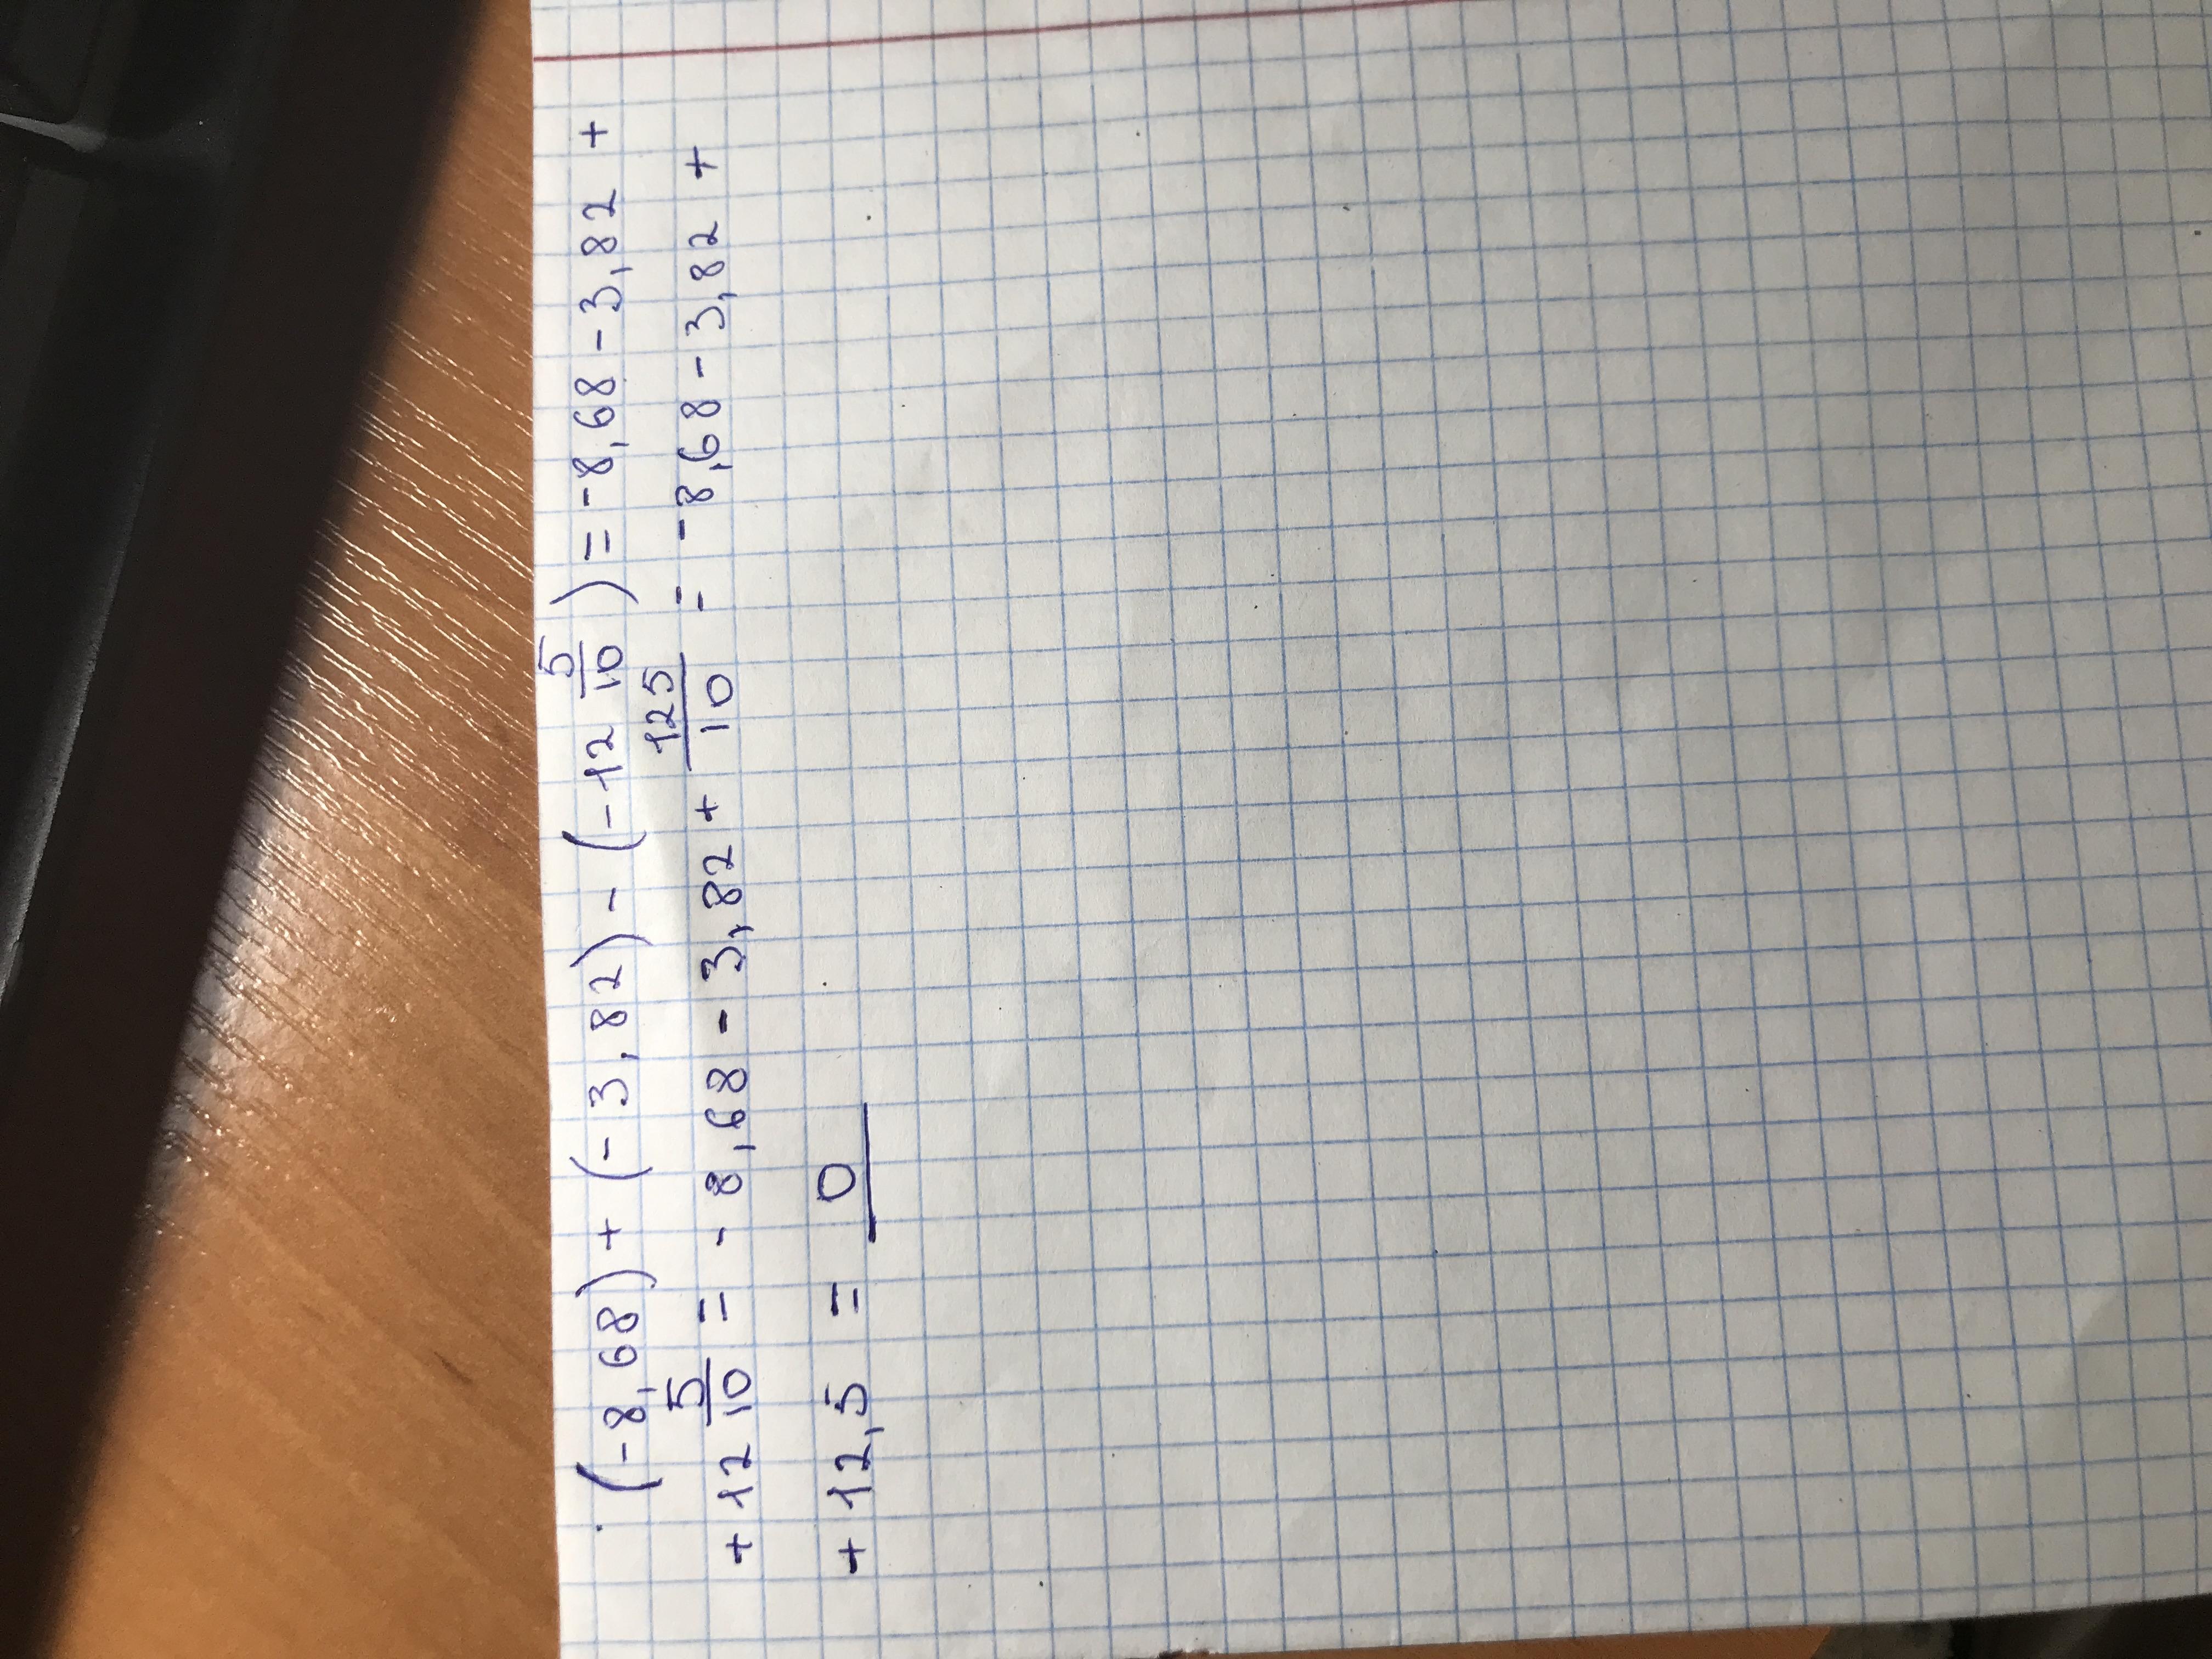 (-8,68) + (-3,82) - (-12 5/10) = -8,68 - 3,82 +
+ 12 5/10 = -8,68 - 3,82 + 125/10 = -8,68 - 3,82 +
+ 12,5 = 0